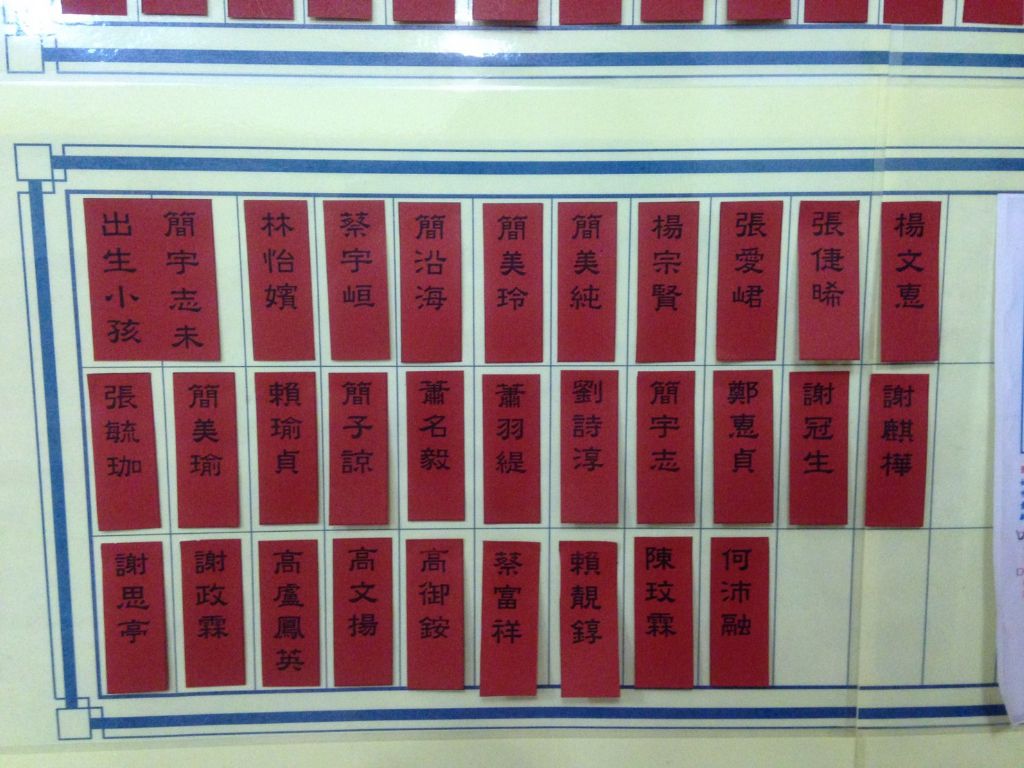 楊文惠
張倢晞
張愛峮
楊宗賢
簡美純
簡美玲
簡沿海
蔡宇峘
林怡嬪
簡宇志未
出生小孩
謝麒樺
謝冠生
鄭惠貞
簡宇志
劉詩淳
蕭羽緹
蕭名毅
簡子諒
賴瑜貞
簡美瑜
張毓珈
何沛融
陳玟霖
賴靚錞
蔡富祥
高御銨
高文揚
高盧鳳英
謝政霖
謝思亭